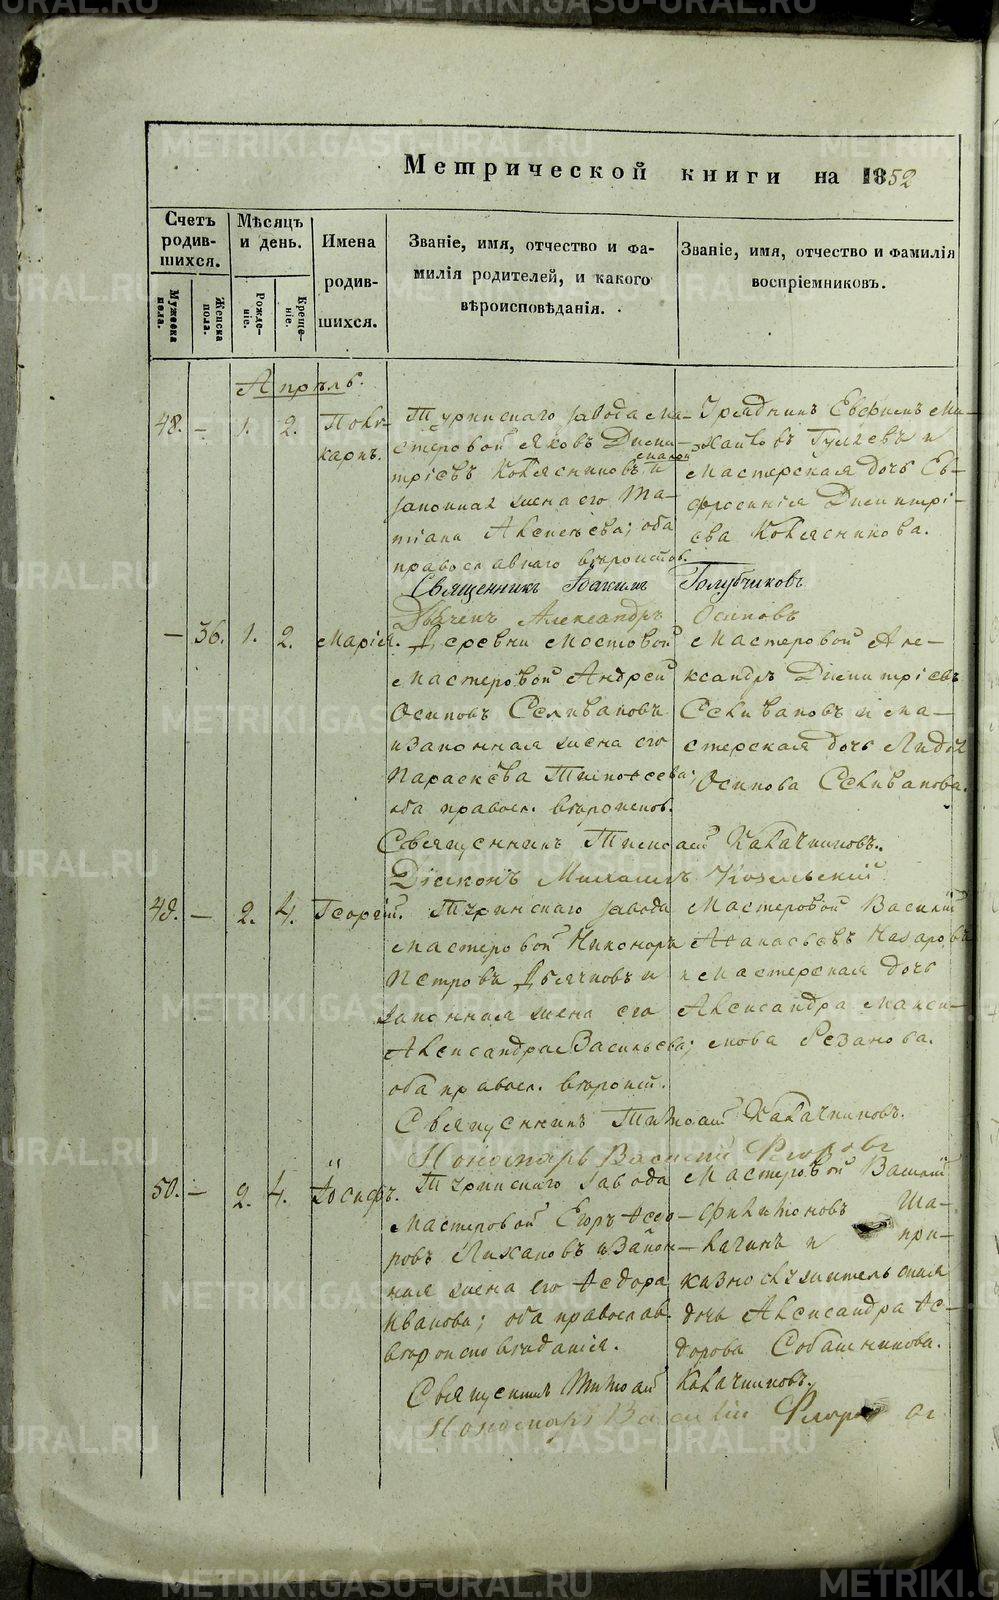 Метрической книги на 1852
Счетъ родившихся.
Мѣсяцъ и день.
Имена родившихся.
Званіе, имя, отчество и фамилія родителей, и какого вѣроисповѣданія.
Званіе, имя, отчество и фамилія воспріемниковъ.
Мужеска пола.
Женска пола.
Рожденіе.
Крещеніе.
Апрѣль.
48. — 1. 2.
Поликарпъ.
Туринскаго завода ма-
стеровой Яковъ Дими-
тріевъ Колясниковъ и
законная жена его Та-
тіана Алексѣева; оба
православнаго вѣроиспов.
Урядникъ Евфимъ Ми-
хайловъ Гуляевъ и
мастерская дочь Ев-
фросинія Димитрі-
ева Колясникова.
Священникъ Іоакимъ Голубчиковъ
Дьячекъ Александръ Осиповъ
— 36. 1. 2.
Марія.
Деревни Мостовой
мастеровой Андрей
Осиповъ Селивановъ
и законная жена его
Параскева Тимоѳеева;
оба правосл. вѣроиспов.
Мастеровой Але-
ксандръ Димитріевъ
Селивановъ и ма-
стерская дочь Лидія
Осипова Селиванова.
Священникъ Тимоѳей Калачниковъ.
Діаконъ Михаилъ Козельскій
49. — 2. 4.
Георгій.
Туринскаго завода
мастеровой Никоноръ
Петровъ Дьячковъ и
законная жена его
Александра Васильева;
оба правосл. вѣроисп.
Мастеровой Василій
Аѳанасьевъ Назаровъ
и мастерская дочь
Александра Макси-
мова Резанова.
Священникъ Тимоѳей Калачниковъ.
Пономарь Василій Флоровъ
50. — 2. 4.
Іосифъ.
Туринскаго завода
мастеровой Егоръ Ѳедо-
ровъ Лихановъ и закон-
ная жена его Ѳедора
Иванова; оба православ.
вѣроисповѣданія.
Мастеровой Василій
Филимоновъ Ша-
лагинъ и при-
казнослужительская
дочь Александра Ѳе-
дорова Собашникова.
Священникъ Тимоѳей Калачниковъ.
Пономарь Василій
METRIKI.GASO-URAL.RU